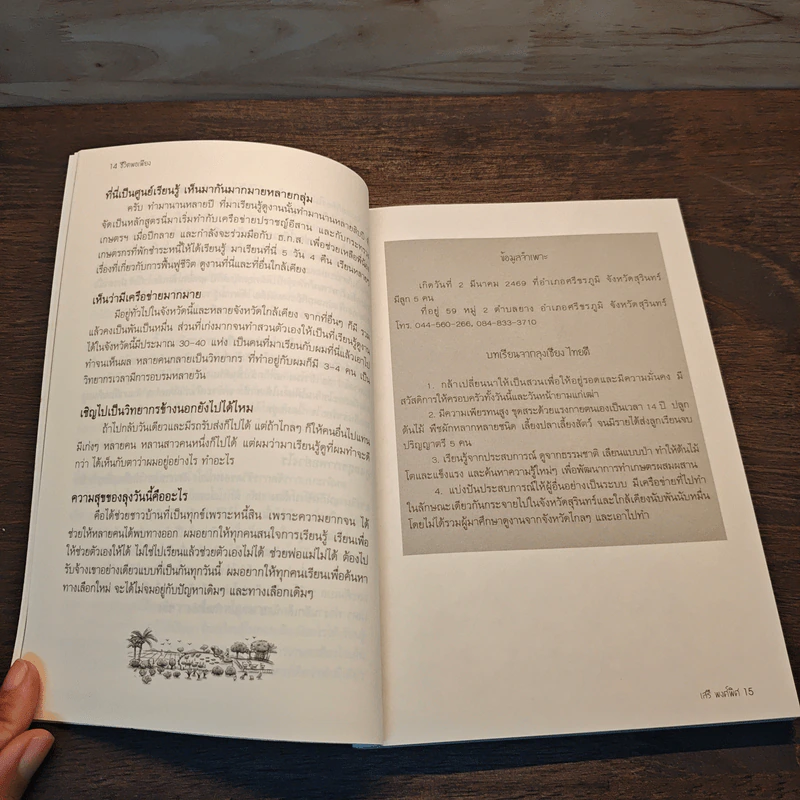 14 ชีวิตพอเพียง
ที่นี่เป็นศูนย์เรียนรู้ เห็นมากันมากมายหลายกลุ่ม
ครับ ทำมานานหลายปี ที่มาเรียนรู้ดูงานนั้นทำมานานหลายสิบปี ที่
จัดเป็นหลักสูตรนี่มาเริ่มทำกับเครือข่ายปราชญ์อีสาน และกับกระทรวง
เกษตรฯ เมื่อปีกลาย และกำลังจะร่วมมือกับ ธ.ก.ส. เพื่อช่วยเหลือพี่น้อง
เกษตรกรที่พักชำระหนี้ให้ได้เรียนรู้ มาเรียนที่นี่ 5 วัน 4 คืน เรียนหลายๆ
เรื่องที่เกี่ยวกับการฟื้นฟูชีวิต ดูงานที่นี่และที่อื่นใกล้เคียง
เห็นว่ามีเครือข่ายมากมาย
มีอยู่ทั่วไปในจังหวัดนี้และหลายจังหวัดใกล้เคียง จากที่อื่นๆ ก็มี รวม
แล้วคงเป็นพันเป็นหมื่น ส่วนที่เก่งมากจนทำสวนตัวเองให้เป็นที่เรียนรู้ดูงาน
ได้ในจังหวัดนี้มีประมาณ 30-40 แห่ง เป็นคนที่มาเรียนกับผมที่นี่แล้วเอาไป
ทำจนเห็นผล หลายคนกลายเป็นวิทยากร ที่ทำอยู่กับผมก็มี 3-4 คน เป็น
วิทยากรเวลามีการอบรมหลายวัน
เชิญไปเป็นวิทยากรข้างนอกยังไปได้ไหม
ถ้าไปกลับวันเดียวและมีรถรับส่งก็ไปได้ แต่ถ้าไกลๆ ก็ให้คนอื่นไปแทน
มีเก่งๆ หลายคน หลานสาวคนหนึ่งก็ไปได้ แต่ผมว่ามาเรียนรู้ดูที่ผมทำจะดี
กว่า ได้เห็นกับตาว่าผมอยู่อย่างไร ทำอะไร
ความสุขของลุงวันนี้คืออะไร
คือได้ช่วยชาวบ้านที่เป็นทุกข์เพราะหนี้สิน เพราะความยากจน ได้
ช่วยให้หลายคนได้พบทางออก ผมอยากให้ทุกคนสนใจการเรียนรู้ เรียนเพื่อ
ให้ช่วยตัวเองให้ได้ ไม่ใช่ไปเรียนแล้วช่วยตัวเองไม่ได้ ช่วยพ่อแม่ไม่ได้ ต้องไป
รับจ้างเขาอย่างเดียวแบบที่เป็นกันทุกวันนี้ ผมอยากให้ทุกคนเรียนเพื่อค้นหา
ทางเลือกใหม่ จะได้ไม่จมอยู่กับปัญหาเดิมๆ และทางเลือกเดิมๆ
ข้อมูลจำเพาะ
เกิดวันที่ 2 มีนาคม 2469 ที่อำเภอศรีขรภูมิ จังหวัดสุรินทร์
มีลูก 5 คน
ที่อยู่ 59 หมู่ 2 ตำบลยาง อำเภอศรีขรภูมิ จังหวัดสุรินทร์
โทร. 044-560-266, 084-833-3710
บทเรียนจากลุงเชียง ไทยดี
1. กล้าเปลี่ยนนาให้เป็นสวนเพื่อให้อยู่รอดและมีความมั่นคง มี
สวัสดิการให้ครอบครัวทั้งวันนี้และวันหน้ายามแก่เฒ่า
2. มีความเพียรทนสูง ขุดสระด้วยแรงกายตนเองเป็นเวลา 14 ปี ปลูก
ต้นไม้ พืชผักหลากหลายชนิด เลี้ยงปลาเลี้ยงสัตว์ จนมีรายได้ส่งลูกเรียนจบ
ปริญญาตรี 5 คน
3. เรียนรู้จากประสบการณ์ ดูจากธรรมชาติ เลียนแบบป่า ทำให้ต้นไม้
โตและแข็งแรง และค้นหาความรู้ใหม่ๆ เพื่อพัฒนาการทำเกษตรผสมผสาน
4. แบ่งปันประสบการณ์ให้ผู้อื่นอย่างเป็นระบบ มีเครือข่ายที่ไปทำ
ในลักษณะเดียวกันกระจายไปในจังหวัดสุรินทร์และใกล้เคียงนับพันนับหมื่น
โดยไม่ได้รวมผู้มาศึกษาดูงานจากจังหวัดไกลๆ และเอาไปทำ
เสรี พงศ์พิศ 15